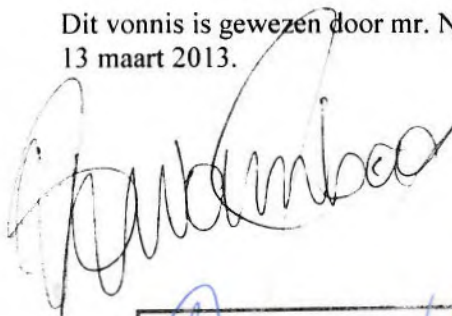 Dit vonnis is gewezen door mr. N
13 maart 2013.